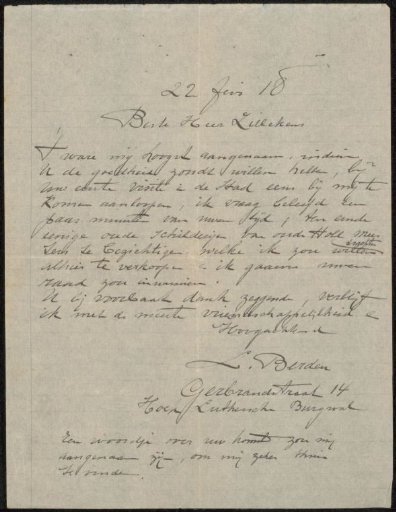 22 Juni 18
Beste Heer Lillekens
't ware mij hoogst aangenaam, indien
U de goedheid zoudt willen hebben, bij
uw eerste visite in de stad eens bij mij te
komen aanloopen, ik vraag beleefd een
paar minuten van uwen tijd, ten einde
eenige oude schilderijen van oude Holl. mees-
ters te bezichtigen welke ik zou
te verkoopen & ik gaarne uwen
raad zou inwinnen.
U bij voorbaat dank zeggend, verblijf
ik met de meeste vriendschappelijkheid &
Hoogachtend
L. Berden
Gerbrandstraat 14
Hoek Luthersche Burgwal
Een woordje over uw komst zou mij
aangenaam zijn, om mij zeker thuis
te vinden.